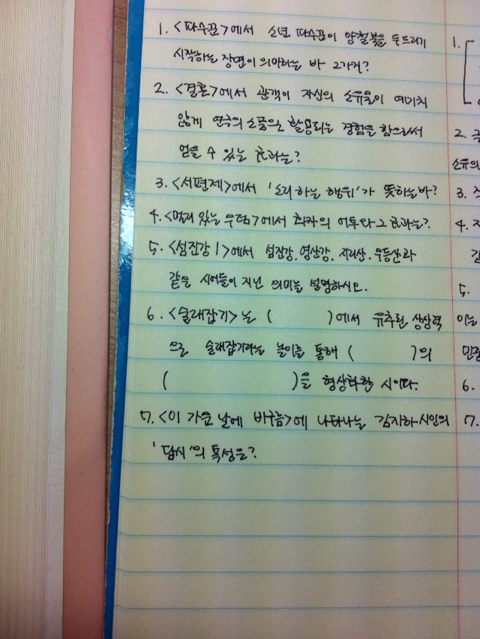 1. <파수꾼>에서 소년 파수꾼이 양철북을 두드리기
시작하는 장면이 의미하는 바 2가지?
2. <결혼>에서 관객이 자신의 소유물이 예기치
않게 연극의 소품으로 활용되는 경험을 함으로써
얻을 수 있는 효과는?
3. <서편제>에서 '소리하는 행위'가 뜻하는바?
4. <멋리 있는 무덤>에서 화자의 어투와 그 효과는?
5. <섬진강 1>에서 섬진강, 영산강, 지리산, 무등산과
같은 시어들이 지닌 의미를 설명하시오.
6. <술래잡기>는 ( )에서 유추된 상상력
으로 술래잡기라는 놀이를 통해 ( )의
( )을 형상화한 시이다.
7. <이 가문 날에 비구름>에 나타나는 김지하 시인의
'담시'의 특성은?
1.
2.
소유의
3.
4.
5.
이는
6.
7.